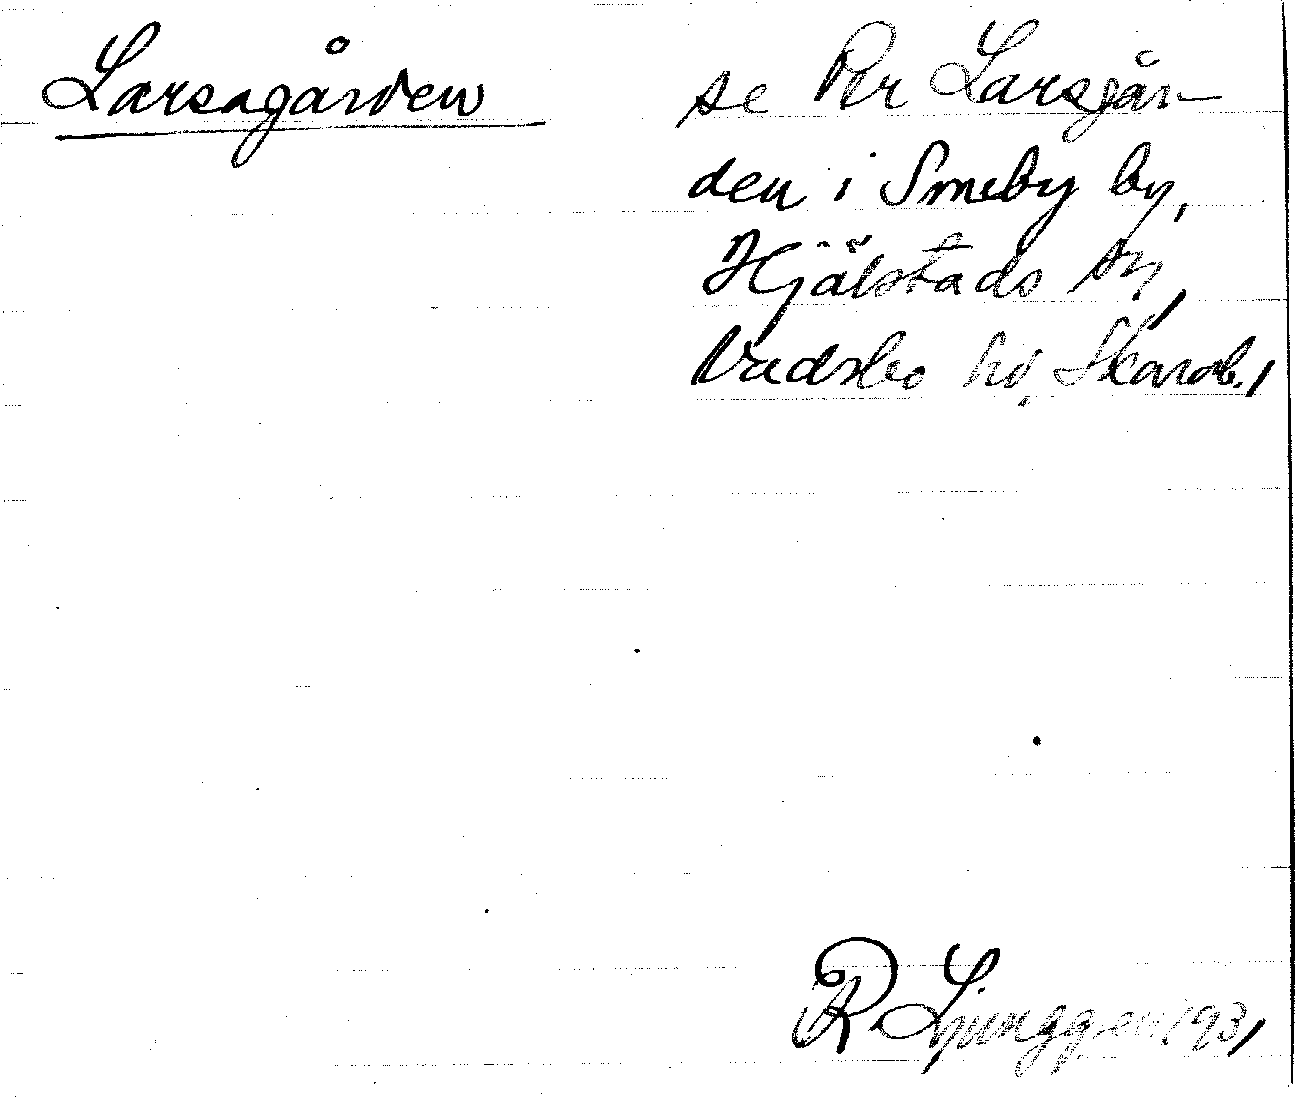 Larsagården
se Per Larsgår-
den i Smeby by,
Hjälstads sn,
Vadsbo hd, Skarab.,
R. Ljunggren 1931